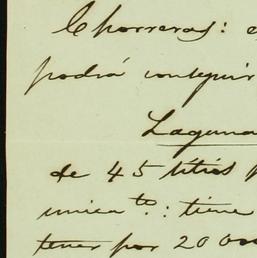 Chorreras:
podrá conseguir
Laguna
de 45 títis
unica to: tiene
tener por 20